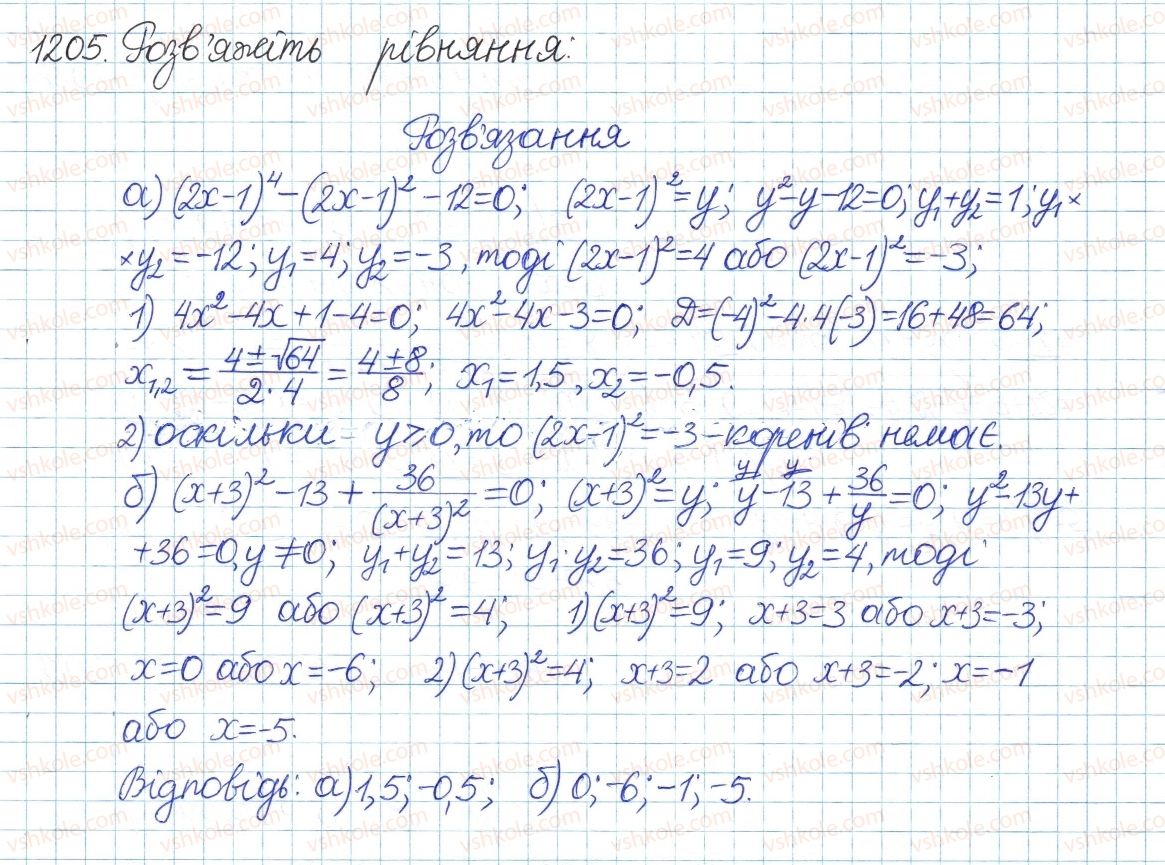 1205. Розв'яжіть рівняння:
Розв'язання
а) (2x-1)⁴-(2x-1)²-12=0; (2x-1)²=y; y²-y-12=0; y₁+y₂=1; y₁×
×y₂=-12; y₁=4; y₂=-3, тоді (2x-1)²=4 або (2x-1)²=-3;
1) 4x²-4x+1-4=0; 4x²-4x-3=0; Д=(-4)²-4·4(-3)=16+48=64;
x₁,₂ = (4±√64)/(2·4) = (4±8)/8; x₁=1,5, x₂=-0,5.
2) оскільки y≥0, то (2x-1)²=-3 - коренів немає.
б) (x+3)²-13+36/(x+3)²=0; (x+3)²=y; y/ y-y/ 13+36/y=0; y²-13y+
+36=0, y≠0; y₁+y₂=13; y₁·y₂=36; y₁=9; y₂=4, тоді
(x+3)²=9 або (x+3)²=4; 1) (x+3)²=9; x+3=3 або x+3=-3;
x=0 або x=-6; 2) (x+3)²=4; x+3=2 або x+3=-2; x=-1
або x=-5.
Відповідь: а) 1,5; -0,5; б) 0; -6; -1; -5.